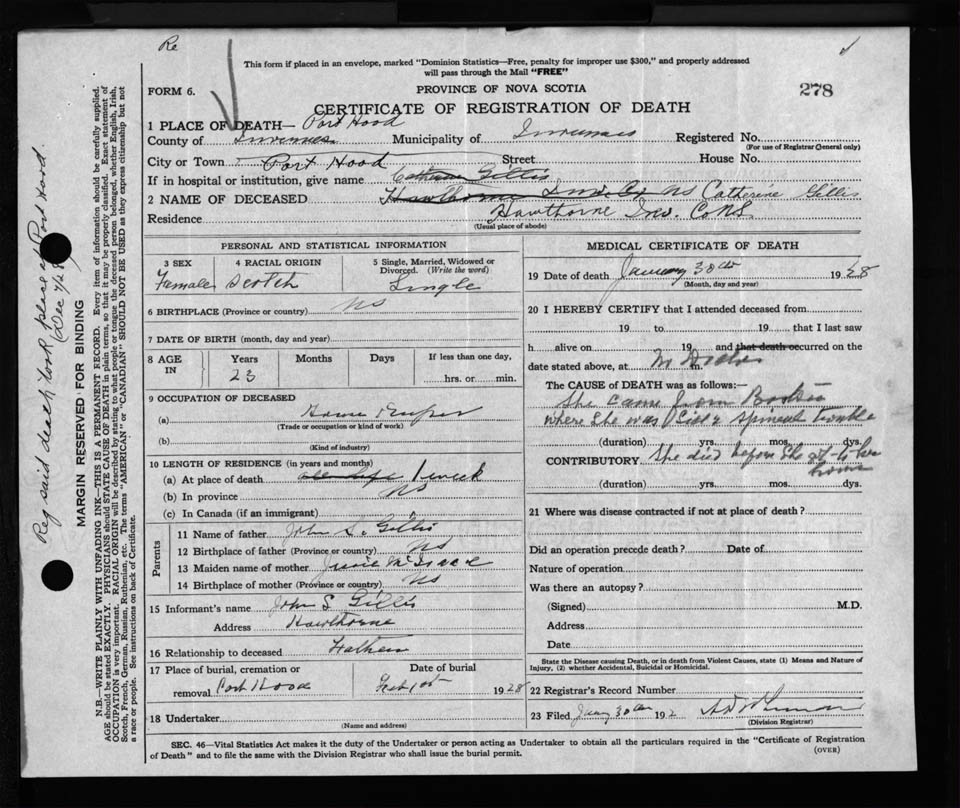 Re
This form if placed in an envelope, marked "Dominion Statistics—Free, penalty for improper use $300," and properly addressed
will pass through the Mail "FREE"
FORM 6.
PROVINCE OF NOVA SCOTIA
278
CERTIFICATE OF REGISTRATION OF DEATH
1 PLACE OF DEATH— Port Hood
County of Inverness Municipality of Inverness Registered No.
(For use of Registrar General only)
City or Town Port Hood Street House No.
If in hospital or institution, give name Catherine Gillis
2 NAME OF DECEASED Hawthorne Inv. Co NS Catherine Gillis
Residence Hawthorne Inv. Co NS
(Usual place of abode)
PERSONAL AND STATISTICAL INFORMATION
3 SEX 4 RACIAL ORIGIN 5 Single, Married, Widowed or
Divorced. (Write the word)
Female Scotch Single
6 BIRTHPLACE (Province or country) NS
7 DATE OF BIRTH (month, day and year)
8 AGE IN Years Months Days If less than one day,
23 hrs. or min.
9 OCCUPATION OF DECEASED
(a) House Keeper
(Trade or occupation or kind of work)
(b)
(Kind of industry)
10 LENGTH OF RESIDENCE (in years and months)
(a) At place of death 1 week
(b) In province NS
(c) In Canada (if an immigrant)
Parents
11 Name of father John S. Gillis
12 Birthplace of father (Province or country) NS
13 Maiden name of mother
14 Birthplace of mother (Province or country) NS
15 Informant's name John S Gillis
Address Hawthorne
16 Relationship to deceased Father
17 Place of burial, cremation or Date of burial
removal Port Hood Feb 1st 1928
18 Undertaker
(Name and address)
MEDICAL CERTIFICATE OF DEATH
19 Date of death January 30th 1928
(Month, day and year)
20 I HEREBY CERTIFY that I attended deceased from
19 to 19 that I last saw
h alive on 19 and that death occurred on the
date stated above, at m.
The CAUSE of DEATH was as follows:—
She came from Boston
where She was Sick spinal trouble
(duration) yrs. mos. dys.
CONTRIBUTORY She died before She got to her
home
(duration) yrs. mos. dys.
21 Where was disease contracted if not at place of death?
Did an operation precede death? Date of
Nature of operation
Was there an autopsy?
(Signed) M.D.
Address
Date
State the Disease causing Death, or in death from Violent Causes, state (1) Means and Nature of
Injury, (2) whether Accidental, Suicidal or Homicidal.
22 Registrar's Record Number
23 Filed Jany 30th 192
(Division Registrar)
SEC. 46—Vital Statistics Act makes it the duty of the Undertaker or person acting as Undertaker to obtain all the particulars required in the "Certificate of Registration
of Death" and to file the same with the Division Registrar who shall issue the burial permit.
(OVER)
Reg said death took place at Port Hood
(Dec 4/28)
MARGIN RESERVED FOR BINDING
N.B.—WRITE PLAINLY WITH UNFADING INK—THIS IS A PERMANENT RECORD. Every item of information should be carefully supplied.
AGE should be stated EXACTLY. PHYSICIANS should STATE CAUSE OF DEATH in plain terms, so that it may be properly classified. Exact statement of
OCCUPATION is very important. RACIAL ORIGIN will be described by stating to what people or tongue the deceased person belonged, whether English, Irish,
Scotch, French, German, Russian, Ruthenian, etc. The terms "AMERICAN" or "CANADIAN" SHOULD NOT BE USED as they express citizenship but not
a race or people. See instructions on back of Certificate.